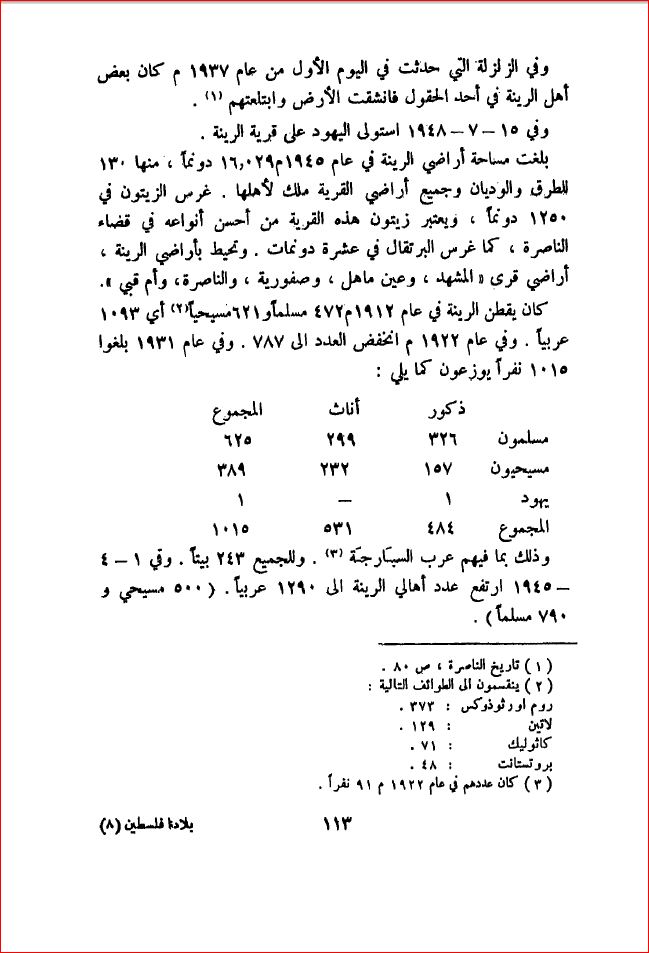 وفي الزلزلة التي حدثت في اليوم الأول من عام ١٩٣٧ م كان بعض
أهل الرينة في أحد الحقول فانشقت الأرض وابتلعتهم (١) .
وفي ١٥ – ٧ – ١٩٤٨ استولى اليهود على قرية الرينة .
بلغت مساحة أراضي الرينة في عام ١٩٤٥م١٦,٠٢٩ دونماً ، منها ١٣٠
للطرق والوديان وجميع أراضي القرية ملك لأهلها . غرس الزيتون في
١٢٥٠ دونماً ، ويعتبر زيتون هذه القرية من أحسن أنواعه في قضاء
الناصرة ، كما غرس البرتقال في عشرة دونمات . وتحيط بأراضي الرينة ،
أراضي قرى « المشهد ، وعين ماهل ، وصفورية ، والناصرة، وأم قبي ».
كان يقطن الرينة في عام ١٩١٢م٤٧٢ مسلماًو٦٢١مسيحياً(٢) أي ١٠٩٣
عربياً . وفي عام ١٩٢٢ م انخفض العدد الى ٧٨٧ . وفي عام ١٩٣١ بلغوا
١٠١٥ نفراً يوزعون كما يلي :
ذكور أناث المجموع
مسلمون ٣٢٦ ٢٩٩ ٦٢٥
مسيحيون ١٥٧ ٢٣٢ ٣٨٩
يهود ١ – ١
المجموع ٤٨٤ ٥٣١ ١٠١٥
وذلك بما فيهم عرب السبارجة (٣) . وللجميع ٢٤٣ بيتاً . وفي ١ – ٤
– ١٩٤٥ ارتفع عدد أهالي الرينة الى ١٢٩٠ عربياً . ( ٥٠٠ مسيحي و
٧٩٠ مسلماً ) .
( ١ ) تاريخ الناصرة ، ص ٨٠ .
( ٢ ) ينقسمون الى الطوائف التالية :
روم اورثوذوكس : ٣٧٣ .
لاتين : ١٢٩ .
كاثوليك : ٧١ .
بروتستانت : ٤٨ .
( ٣ ) كان عددهم في عام ١٩٢٢ م ٩١ نفراً .
١١٣
بلادنا فلسطين (٨)